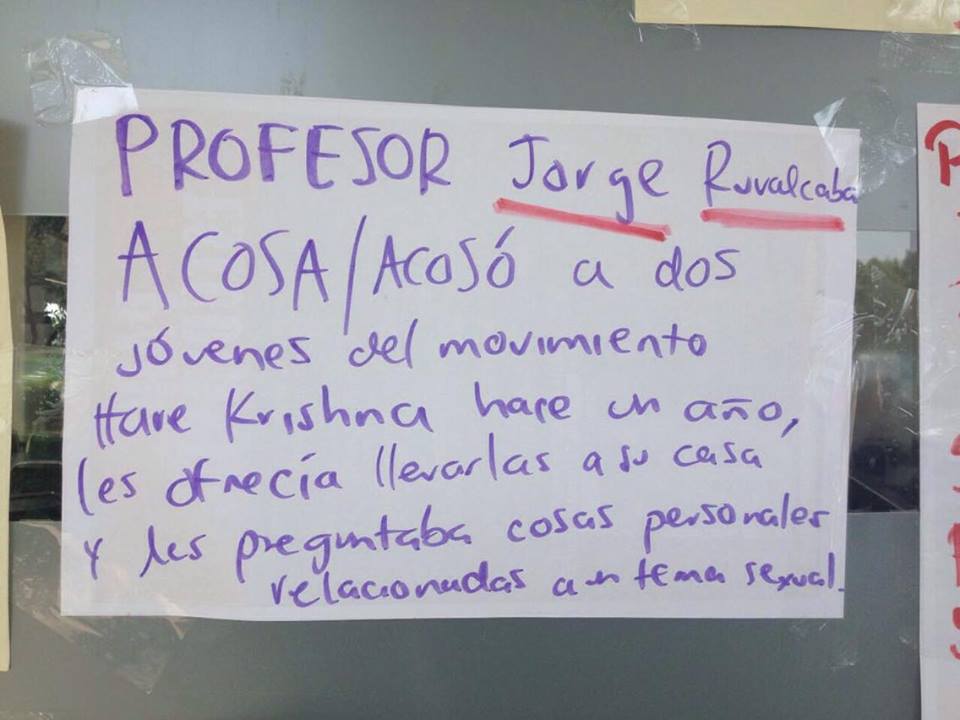 PROFESOR Jorge Ruvalcaba
ACOSA/ACOSÓ a dos
jóvenes del movimiento
Hare Krishna hace un año,
les ofrecía llevarlas a su casa
y les preguntaba cosas personales
relacionadas a un tema sexual.